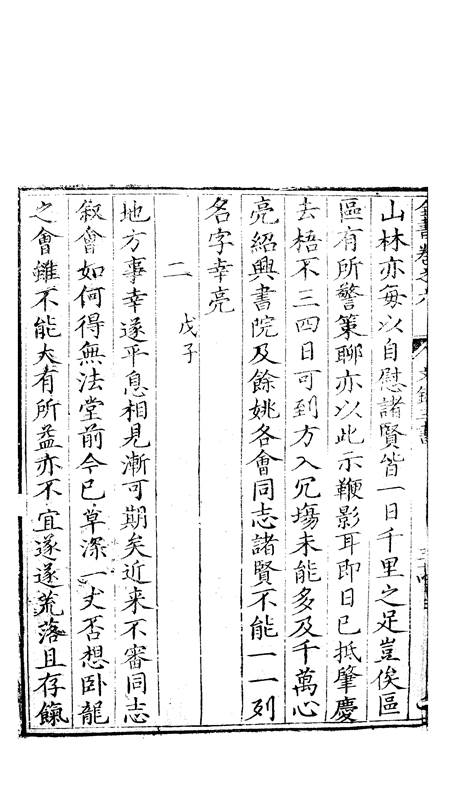 全書卷之六　文錄三書
山林亦每以自慰諸賢皆一日千里之足豈俟區
區有所警策聊亦以此示鞭影耳即日已抵肇慶
去梧不三四日可到方入冗塲未能多及千萬心
亮紹興書院及餘姚各會同志諸賢不能一一列
名字幸亮
二　戊子
地方事幸遂平息相見漸可期矣近来不審同志
叙會如何得無法堂前今已草深一丈否想卧龍
之會雖不能大有所益亦不宜遂遂荒落且存餼